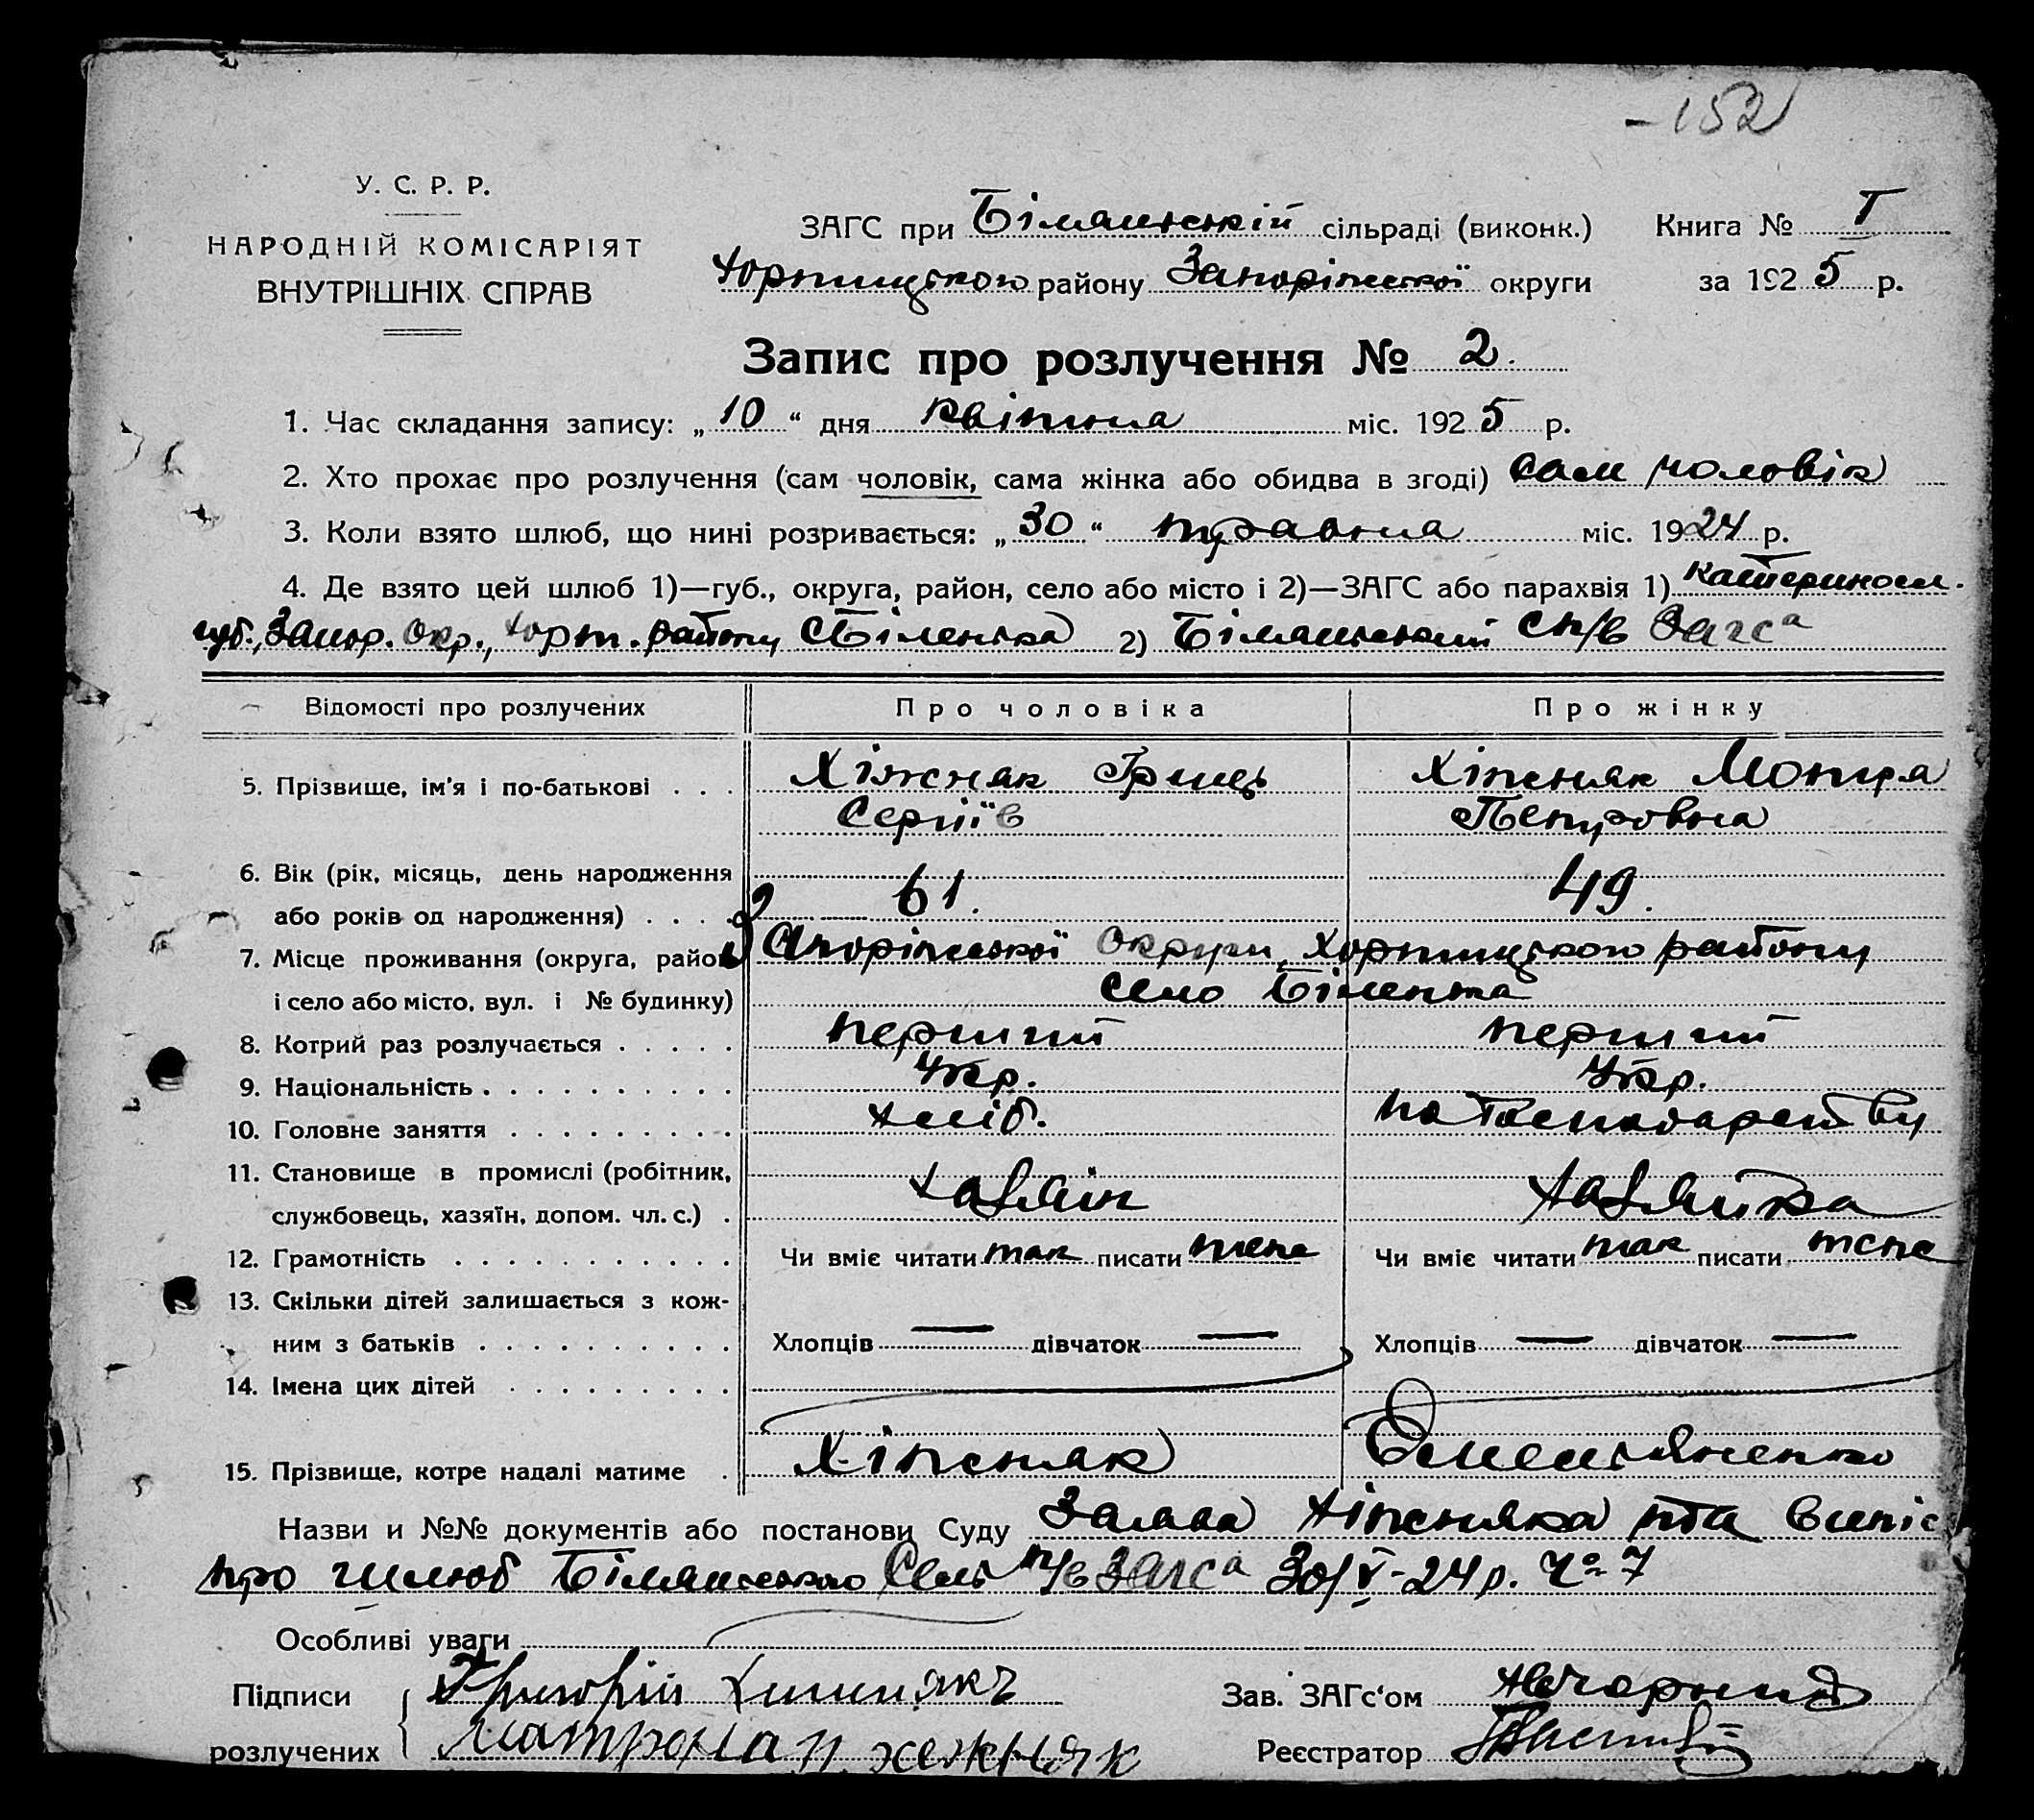 -152
У. С. Р. Р.
НАРОДНІЙ КОМІСАРІЯТ
ВНУТРІШНІХ СПРАВ
ЗАГС при Білянській сільраді (виконк.) Книга № I
Хортицького району Запоріжської округи за 1925 р.
Запис про розлучення № 2.
1. Час складання запису: „10“ дня квітня міс. 1925 р.
2. Хто прохає про розлучення (сам чоловік, сама жінка або обидва в згоді) сам чоловік
3. Коли взято шлюб, що нині розривається: „30“ травня міс. 1924 р.
4. Де взято цей шлюб 1)—губ., округа, район, село або місто і 2)—ЗАГС або парахвія 1) Катериносл.
губ., Запор. Окр., Хорт. району С Біленька 2) Білянський сп/в Загса
Відомості про розлучених Про чоловіка Про жінку
5. Прізвище, ім'я і по-батькові . . . Хіжняк Гриць Хіжняк Мотря
Сергіїв Петровна
6. Вік (рік, місяць, день народження
або років од народження) . . . . 61. 49.
7. Місце проживання (округа, район Запоріжської Округи, Хортицького району
і село або місто, вул. і № будинку) село Біленька
8. Котрий раз розлучається . . . . . перший перший
9. Національність . . . . . . . . . . Укр. Укр.
10. Головне заняття . . . . . . . . . хліб. по господарству
11. Становище в промислі (робітник,
службовець, хазяїн, допом. чл. с.) . хазяїн хазяйка
12. Грамотність . . . . . . . . . . . Чи вміє читати так писати теж Чи вміє читати так писати теж
13. Скільки дітей залишається з кож-
ним з батьків . . . . . . . . . . Хлопців — дівчаток — Хлопців — дівчаток —
14. Імена цих дітей . . . . . . . . .
15. Прізвище, котре надалі матиме . Хіжняк Омельяненко
Назви и №№ документів або постанови Суду Заява Хіжняка та випіс
про шлюб Білянського Сель п/в Загса 30/V-24р. Ч° 7
Особливі уваги
Підписи Григорій Зав. ЗАГс'ом
розлучених Матрона хежняк Реєстратор